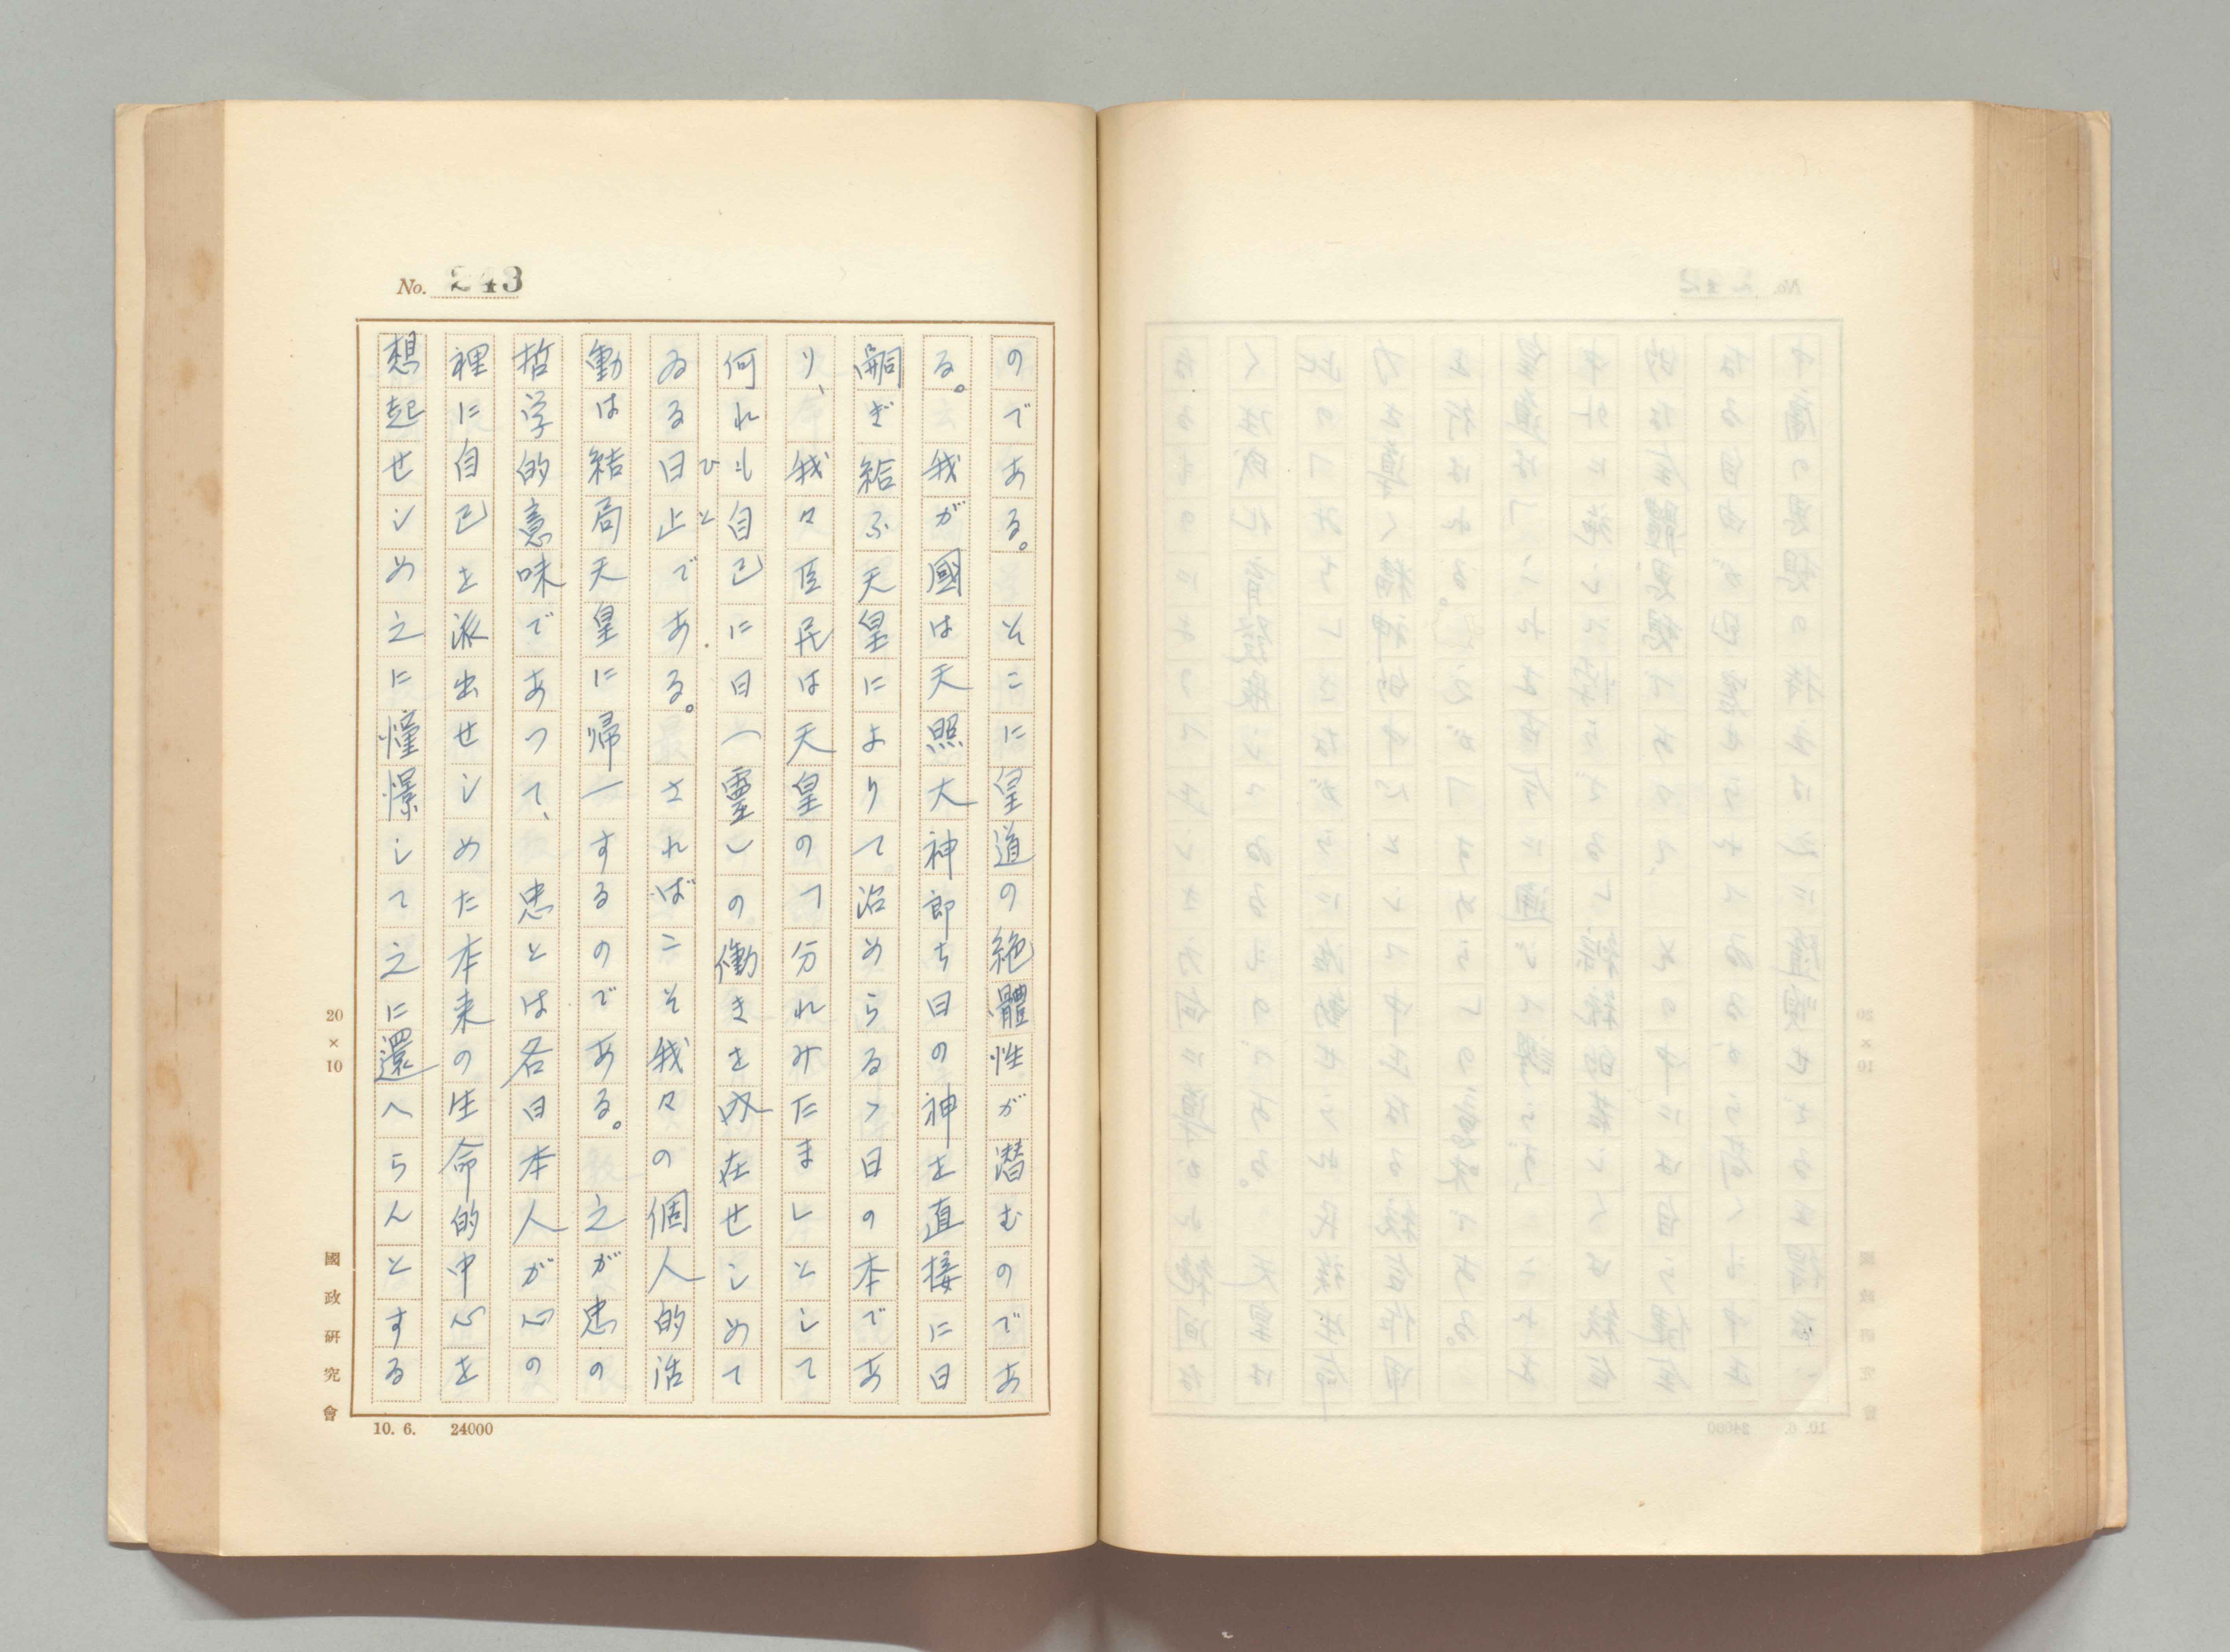 No. 243
のである。　そこに皇道の絶體性が潜むのであ
る。　我が國は天照大神郎ち日の神を直接に日
嗣ぎ給ふ天皇によりて治めらるゝ日の本であ
り、　我々臣民は天皇のつ分れみたましとして
何れも自己に日（靈）の働きを内在せしめて
ゐる日止である。　さればこそ我々の個人的活
ひと
動は結局天皇に帰一するのである。　之が忠の
哲学的意味であつて、　忠とは各日本人が心の
裡に自己を派出せしめた本来の生命的中心を
想起せしめ之に憧憬して之に還へらんとする
20×10
國政研究會
10. 6.　24000